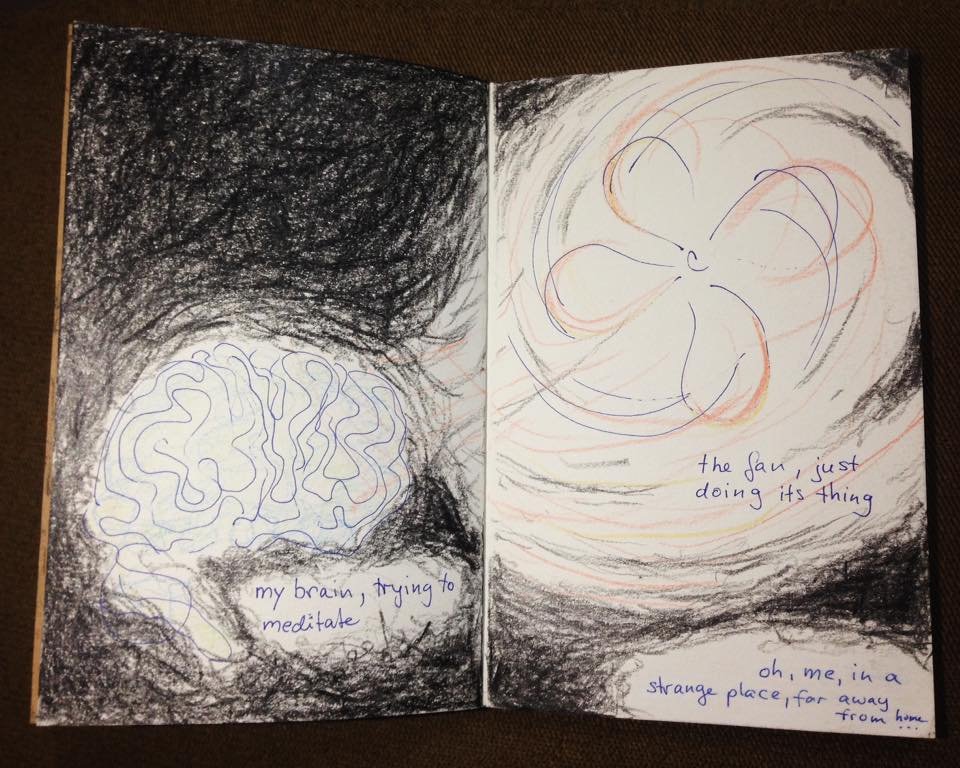 my brain, trying to
meditate
the fan, just
doing its thing
oh, me, in a
strange place, far away
from home
...